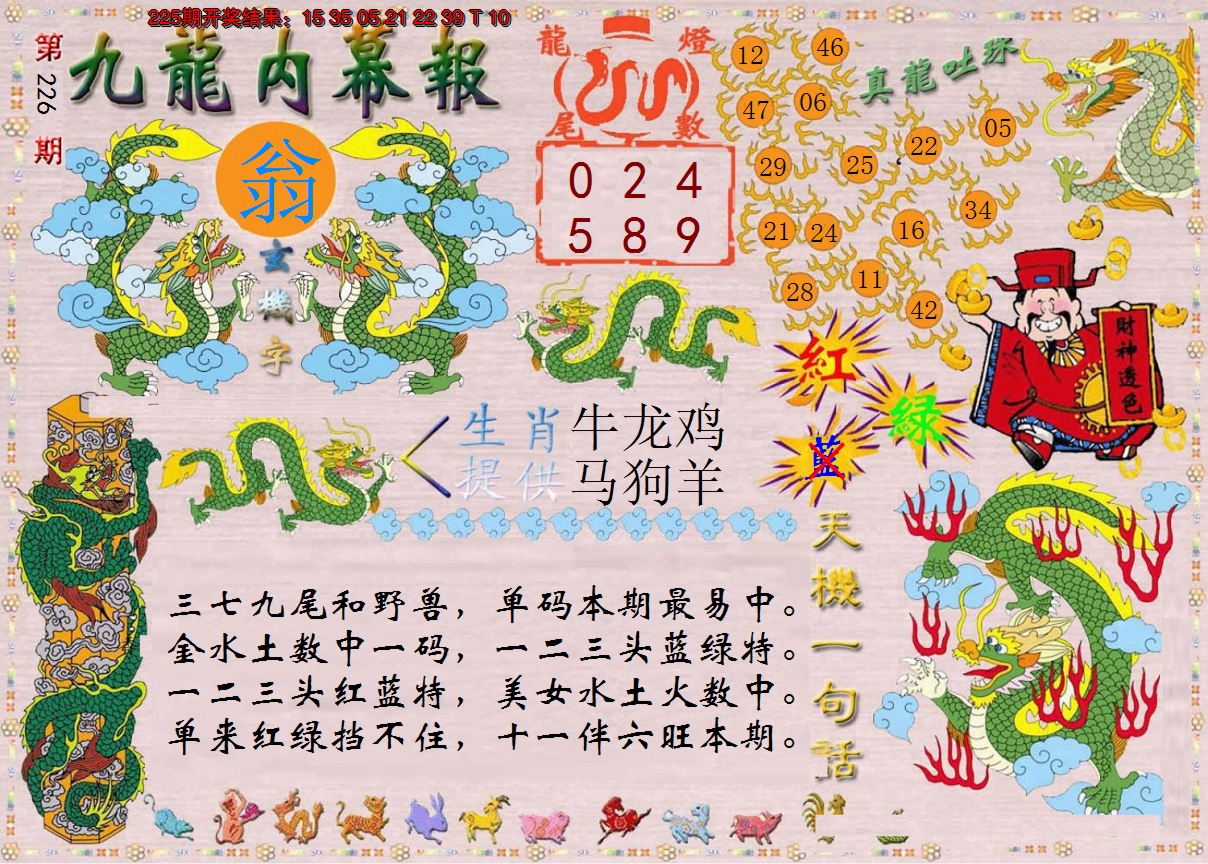 225期开奖结果：15 35 05 21 22 39 T 10
第226期
九龍内幕報
翁
玄機字
龍燈
尾數
0 2 4
5 8 9
真龍吐珠
12 46
47 06
29 25 22 05
21 24 16 34
28 11 42
財神透色
紅
绿
蓝
生肖 牛龙鸡
提供 马狗羊
天機一句話
三七九尾和野兽，单码本期最易中。
金水土数中一码，一二三头蓝绿特。
一二三头红蓝特，美女水土火数中。
单来红绿挡不住，十一伴六旺本期。